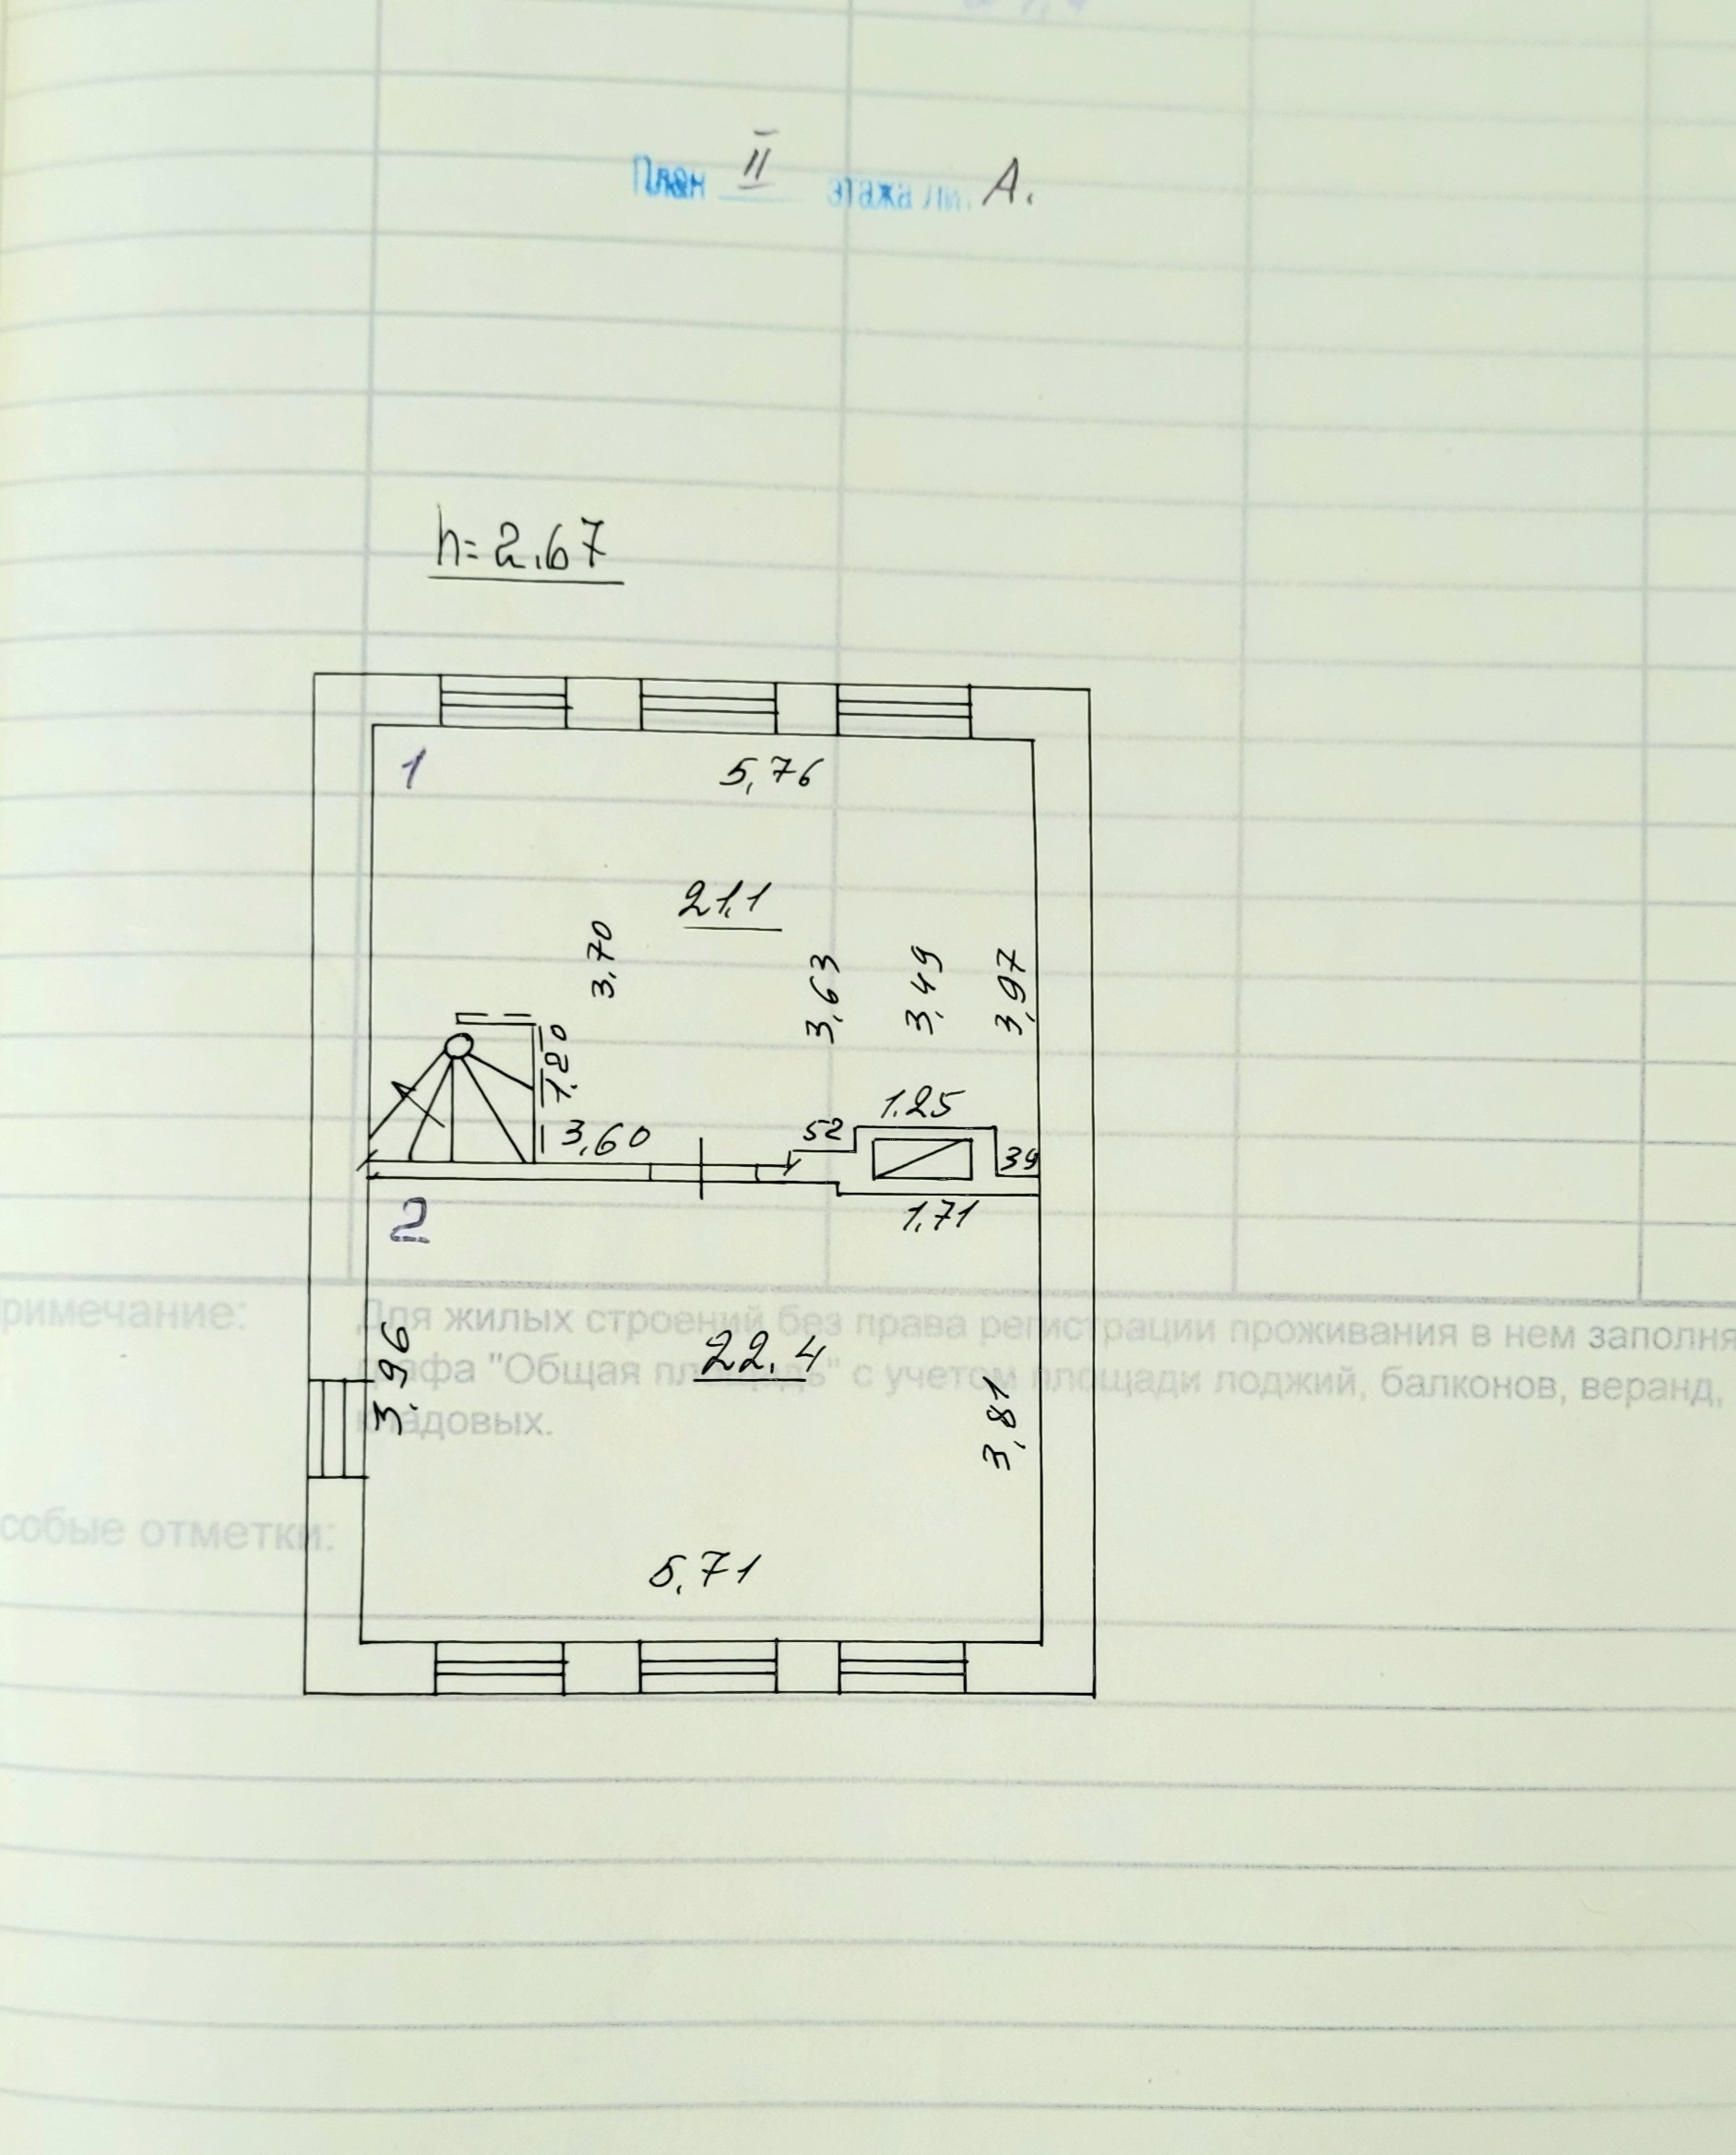 План II этажа ли. А.
h=2.67
1
5,76
21,1
3,70
3,63
3,49
3,97
1.20
3,60
52
1.25
39
1,71
2
римечание: Для жилых строений без права регистрации проживания в нем заполня
графа "Общая площадь" с учетом площади лоджий, балконов, веранд,
кладовых.
22.4
3.96
3,81
собые отметки:
5,71